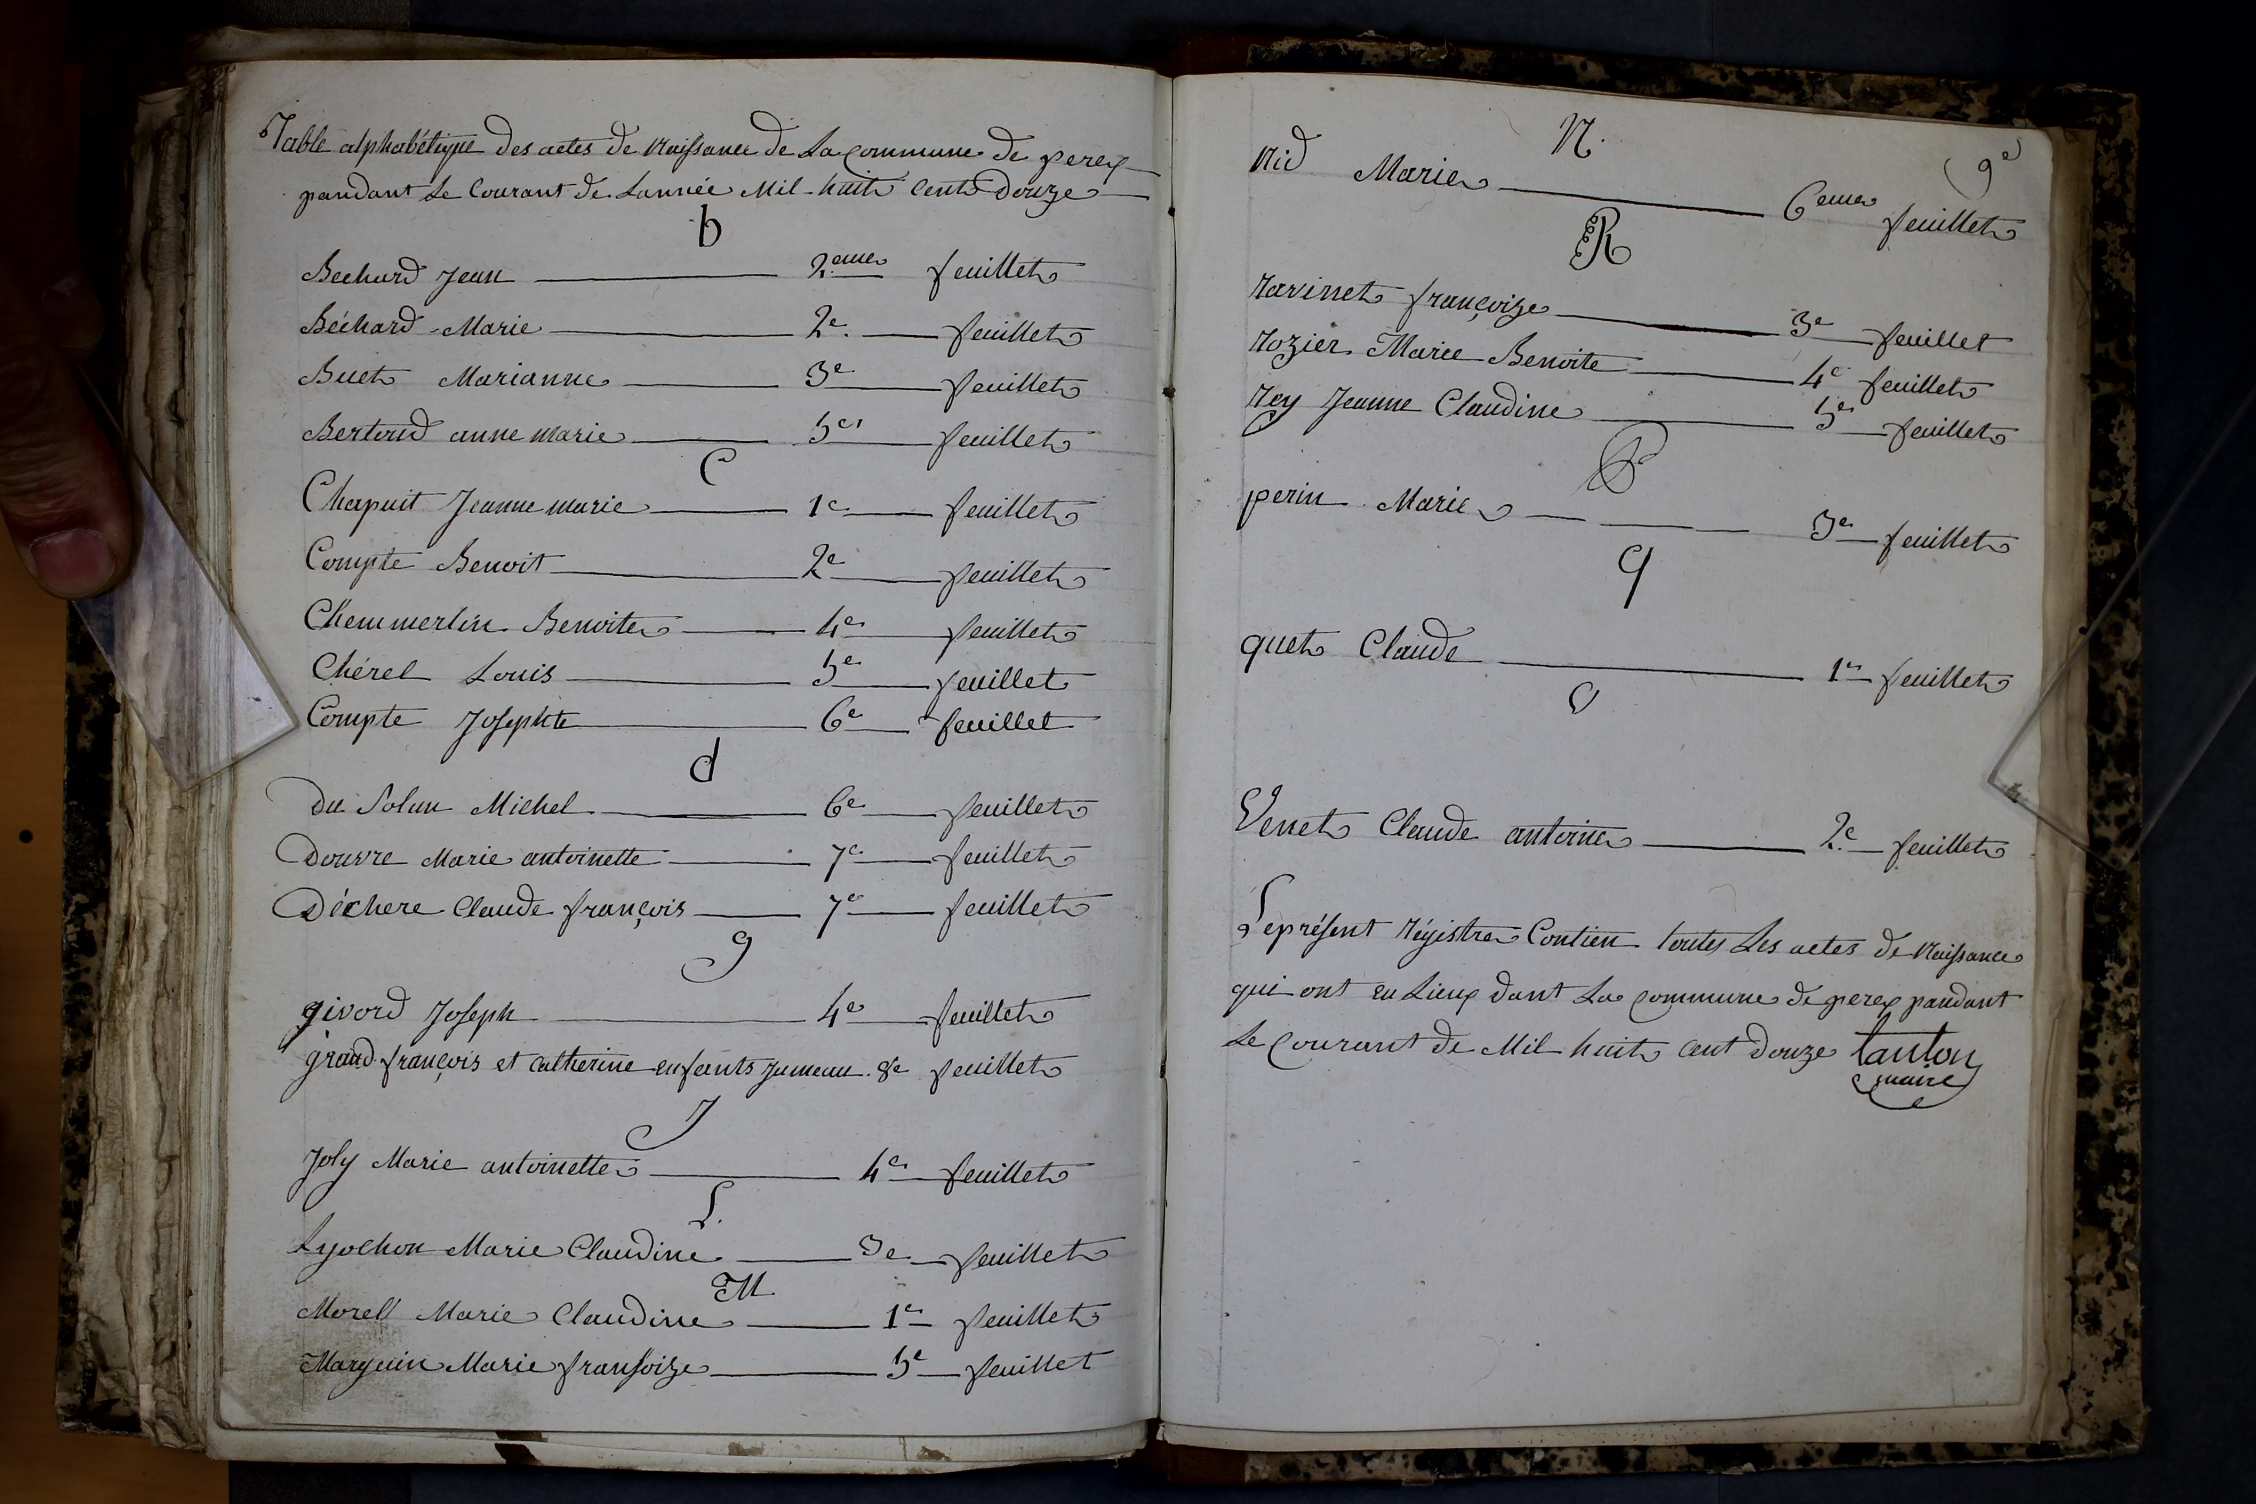 Table alphabétique des actes de Naissance de La Commune de perex
pandant Le Courant de Lannée Mil huit Cent Douze
b
Bechard Jean 2.eme feuillet
Béchard Marie 2e feuillet
Buet Marianne 3e feuillet
Bertoud anne marie 5e feuillet
C
Chapuit Jeanne marie 1e feuillet
Compte Benoit 2e feuillet
Chemmerlin Benoite 4e feuillet
Chérel Louis 5e feuillet
Compte Josephte 6e feuillet
d
Du Solun Michel 6e feuillet
Douvre Marie antoinette 7e feuillet
Déchere Claude françois 7e feuillet
g
givord Joseph 4e feuillet
grand françois et catherine enfants Jumeau 8e feuillet
J
Joly Marie antoinette 4e feuillet
L.
Lyochon Marie Claudine 3e feuillet
M
Morell Marie Claudine 1e feuillet
Marguin Marie fransoize 5e feuillet
9e
N.
Nid Marie 6eme feuillet
R
Ravinet françoize 3e feuillet
Rozier Marie Benoite 4e feuillet
Rey Jeanne Claudine 5e feuillet
P
perin Marie 3e feuillet
q
quet Claude 1e feuillet
V
Venet Claude antoine 2e feuillet
Leprésent Régistre Contien toutes Les actes de Naissance
qui ont eu Lieux dant La Commune de perex pandant
Le Courant de Mil huit cent douze tanton
maire